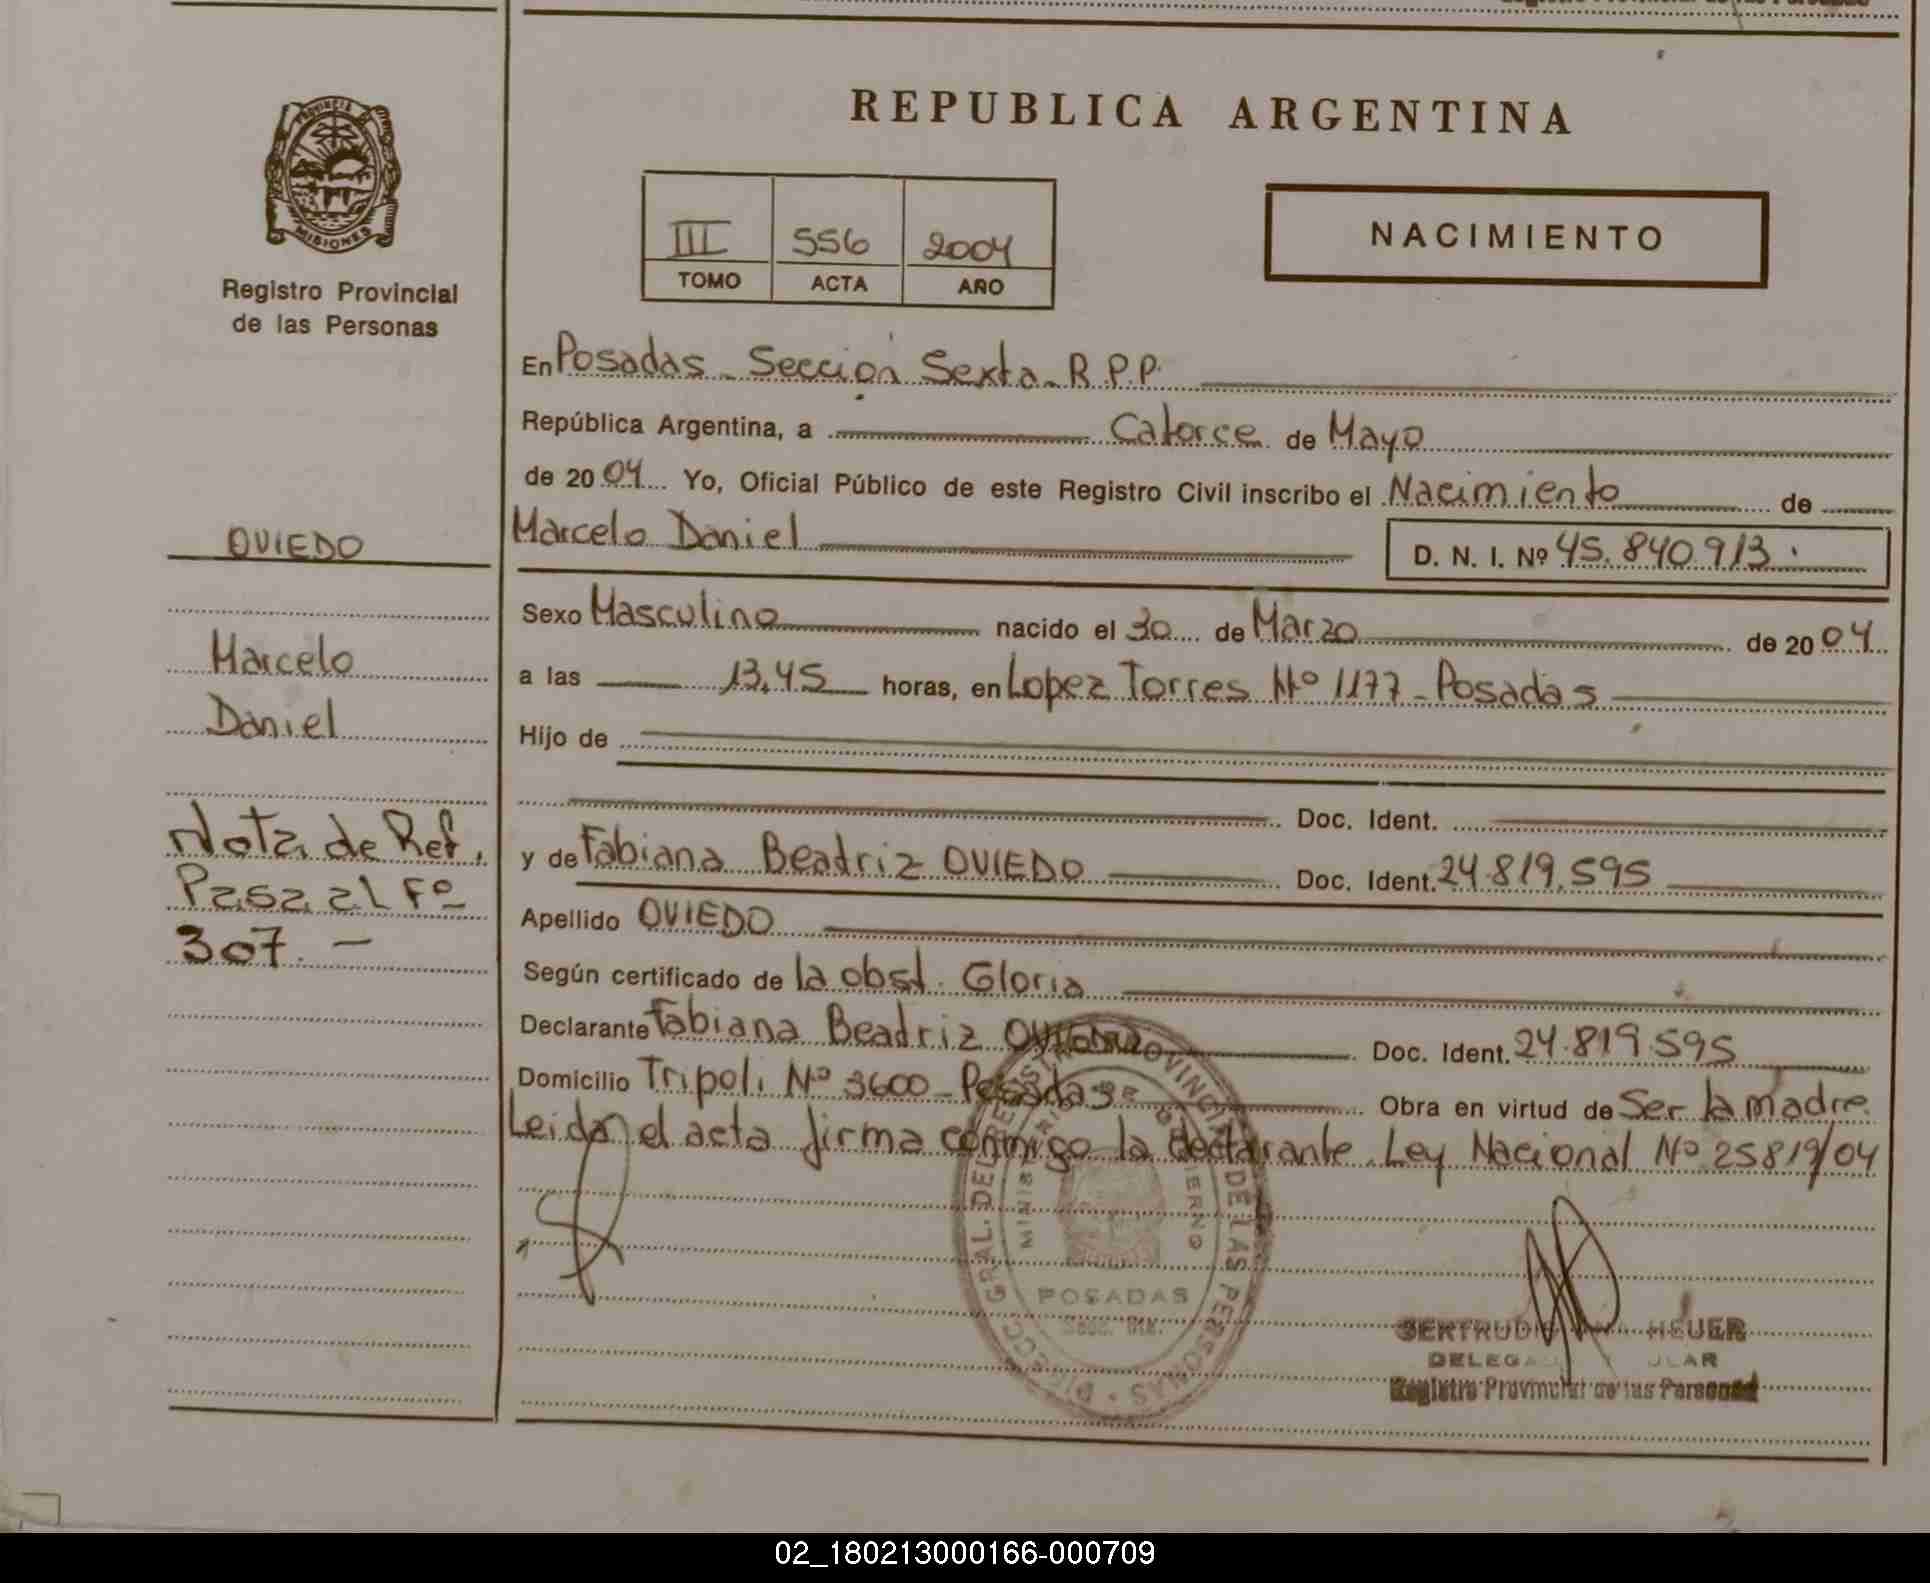 REPUBLICA ARGENTINA
PROVINCIA DE
MISIONES
Registro Provincial
de las Personas
III 556 2004
TOMO ACTA AÑO
NACIMIENTO
En Posadas - Sección Sexta - R.P.P.
República Argentina, a Catorce de Mayo
de 2004 Yo, Oficial Público de este Registro Civil inscribo el Nacimiento de
Marcelo Daniel D. N. I. Nº 45.840.913.
Sexo Masculino nacido el 30 de Marzo de 2004
a las 13,45 horas, en Lopez Torres Nº 1177 - Posadas
Hijo de
Doc. Ident.
y de Fabiana Beatriz OVIEDO Doc. Ident. 24.819.595
Apellido OVIEDO
Según certificado de la obst. Gloria
Declarante Fabiana Beatriz OVIEDO Doc. Ident. 24.819.595
Domicilio Tripoli Nº 3600 - Posadas Obra en virtud de Ser la madre.
Leida el acta firma conmigo la declarante. Ley Nacional Nº 25819/04
OVIEDO
Marcelo
Daniel
Nota de Ref.
Pasa al Fº
307. -
DIRECC. GRAL. DEL REGISTRO PROVINCIAL DE LAS PERSONAS
MINISTERIO DE GOBIERNO
POSADAS
HEUER
Registro Provincial de las Personas
02_180213000166-000709